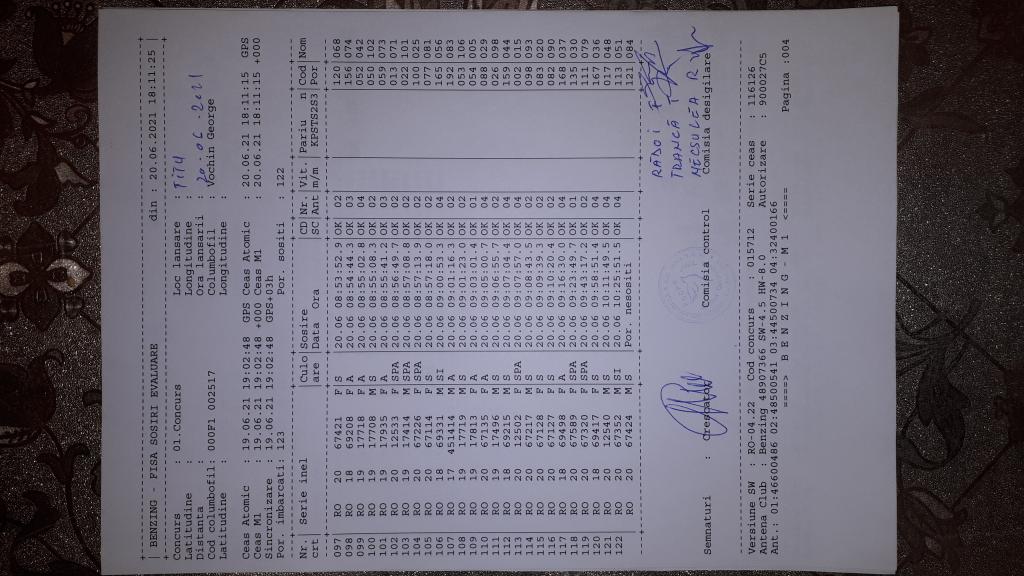 BENZING - FISA SOSIRI EVALUARE din : 20.06.2021 18:11:25
Concurs : 01.Concurs Loc lansare : TITU
Latitudine : Longitudine :
Distanta : Ora lansarii : 20.06.2021
Cod columbofil: 000F1 002517 Columbofil : Vochin George
Latitudine : Longitudine :
Ceas Atomic : 19.06.21 19:02:48 GPS Ceas Atomic : 20.06.21 18:11:15 GPS
Ceas M1 : 19.06.21 19:02:48 +000 Ceas M1 : 20.06.21 18:11:15 +000
Sincronizare : 19.06.21 19:02:48 GPS+03h
Por. imbarcati: 123 Por. sositi : 122
Nr Serie inel Culo Sosire CD Nr. Vit. Pariu n Cod Nom
crt are Data Ora SC Ant m/m KPSTS2S3 Por
097 RO 20 67421 F S 20.06 08:53:52.9 OK 02 120 068
098 RO 18 69208 F A 20.06 08:54:44.3 OK 03 156 074
099 RO 19 17718 F A 20.06 08:55:02.8 OK 04 052 042
100 RO 19 17708 M S 20.06 08:55:08.3 OK 02 050 102
101 RO 19 17935 F A 20.06 08:55:41.2 OK 03 059 103
102 RO 20 12533 F SPA 20.06 08:56:49.7 OK 02 011 073
103 RO 19 17414 M SPA 20.06 08:57:08.8 OK 02 022 101
104 RO 20 67226 F SPA 20.06 08:57:13.4 OK 02 100 025
105 RO 20 67114 F S 20.06 08:57:18.0 OK 02 077 081
106 RO 18 69331 M SI 20.06 09:00:53.3 OK 04 165 056
107 RO 17 451414 M A 20.06 09:01:16.3 OK 04 129 083
108 RO 19 17439 M SPA 20.06 09:01:23.0 OK 02 053 106
109 RO 19 17813 F A 20.06 09:03:01.4 OK 01 054 005
110 RO 20 67135 F A 20.06 09:05:00.7 OK 04 088 029
111 RO 19 17496 M S 20.06 09:06:55.7 OK 02 026 098
112 RO 18 69215 M S 20.06 09:07:04.4 OK 02 159 044
113 RO 19 12502 M SPA 20.06 09:07:57.0 OK 02 009 015
114 RO 20 67217 M S 20.06 09:08:43.5 OK 04 098 093
115 RO 20 67128 F S 20.06 09:09:39.3 OK 02 083 020
116 RO 20 67127 F S 20.06 09:10:20.4 OK 04 082 090
117 RO 18 69498 F A 20.06 09:16:30.0 OK 04 168 037
118 RO 20 67589 F SPA 20.06 09:23:49.7 OK 01 135 030
119 RO 20 67320 F SPA 20.06 09:43:17.2 OK 02 111 079
120 RO 18 69417 F S 20.06 09:58:51.4 OK 02 167 036
121 RO 20 12540 M S 20.06 10:21:49.5 OK 04 017 048
122 RO 20 67352 M SI 20.06 10:25:51.5 OK 04 131 051
RO 20 67424 M S Por. nesositi 121 084
RĂDOI F
TRANCĂ T
MECSULEA R
Semnaturi : Crescator Comisia control Comisia desigilare
Versiune SW : RO-04.22 Cod concurs : 015712 Serie ceas : 116126
Antena Club : Benzing 48907366 SW-4.5 HW-8.0 Autorizare : 900027C5
Ant.: 01:46600486 02:48500541 03:44500734 04:32400166
====> B E N Z I N G - M 1 <==== Pagina :004